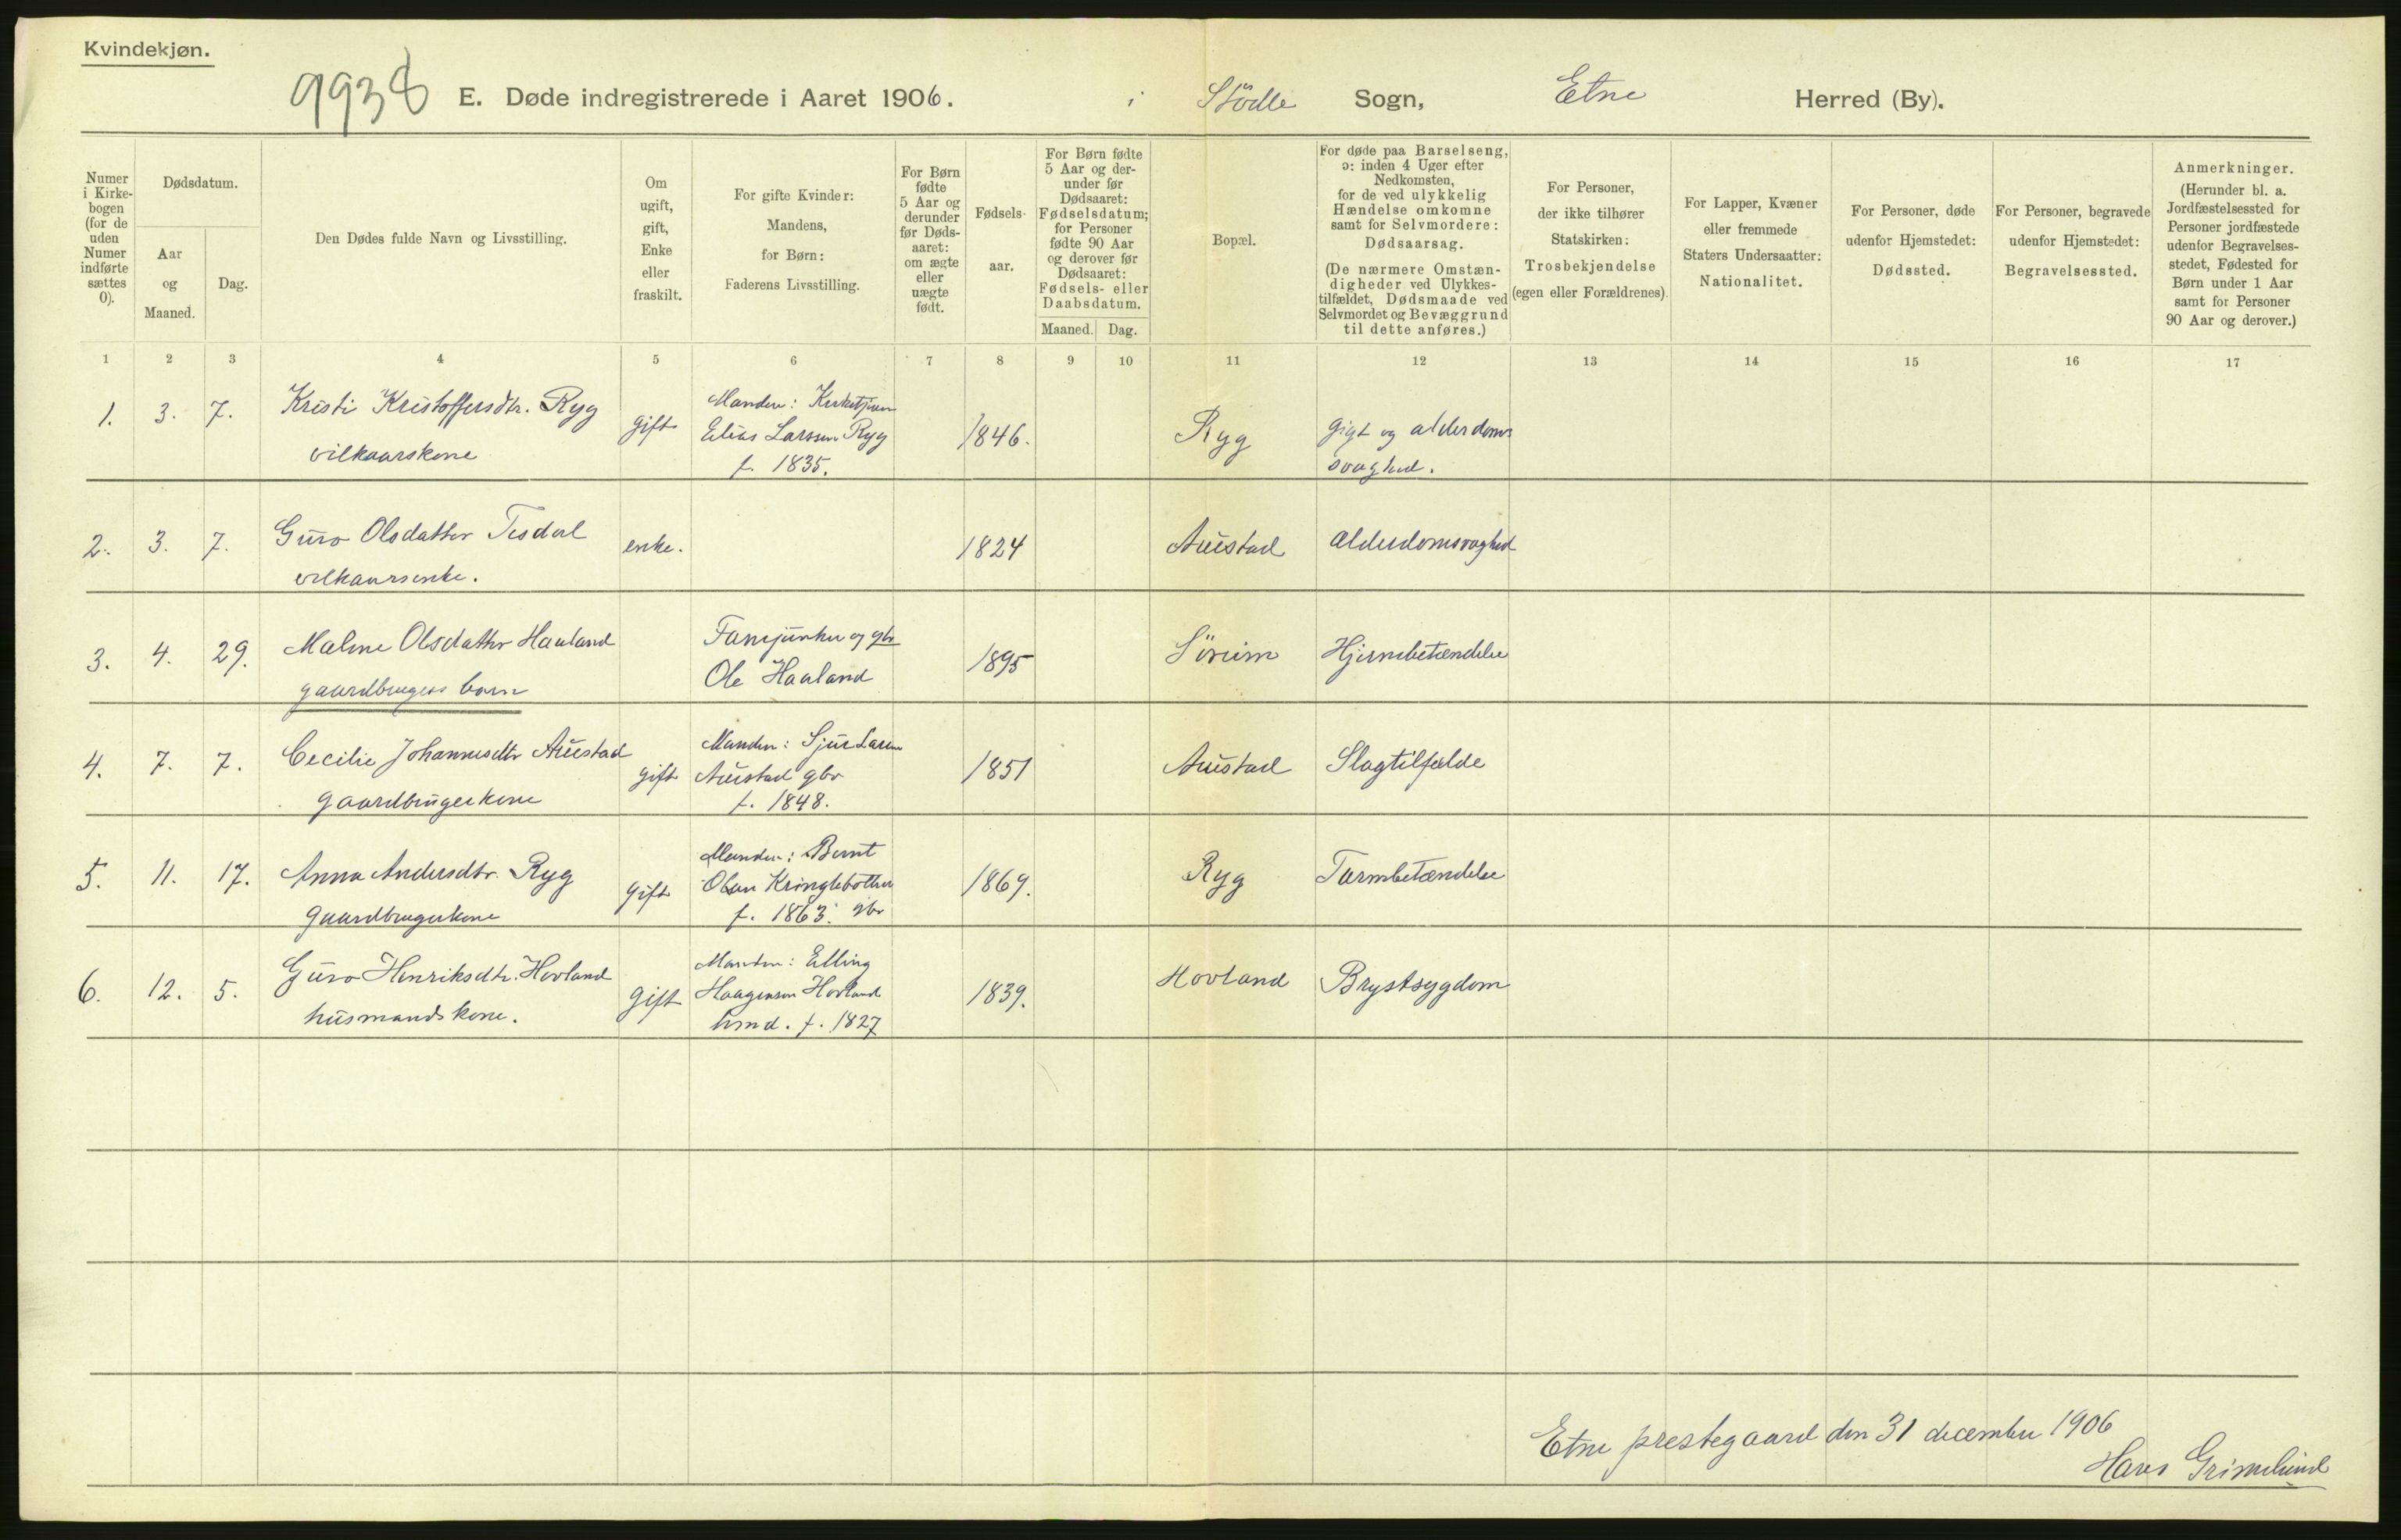 Kvindekjøn.
9938 E. Døde indregistrerede i Aaret 1906. i Stödle Sogn, Etne Herred (By).
Numer i Kirke-
bogen
(for de
uden
Numer
indførte
sættes
0).
Dødsdatum.
Aar
og
Maaned.
Dag.
Den Dødes fulde Navn og Livsstilling.
Om
ugift,
gift,
Enke
eller
fraskilt.
For gifte Kvinder:
Mandens,
for Børn:
Faderens Livsstilling.
For Børn
fødte
5 Aar og
derunder
før Døds-
aaret:
om ægte
eller
uægte
født.
Fødsels-
aar.
For Børn fødte
5 Aar og der-
under før
Dødsaaret:
Fødselsdatum;
for Personer
fødte 90 Aar
og derover før
Dødsaaret:
Fødsels- eller
Daabsdatum.
Maaned. Dag.
Bopæl.
For døde paa Barselseng,
ɔ: inden 4 Uger efter
Nedkomsten,
for de ved ulykkelig
Hændelse omkomne
samt for Selvmordere:
Dødsaarsag.
(De nærmere Omstæn-
digheder ved Ulykkes-
tilfældet, Dødsmaade ved
Selvmordet og Bevæggrund
til dette anføres.)
For Personer,
der ikke tilhører
Statskirken:
Trosbekjendelse
(egen eller Forældrenes).
For Lapper, Kvæner
eller fremmede
Staters Undersaatter:
Nationalitet.
For Personer, døde
udenfor Hjemstedet:
Dødssted.
For Personer, begravede
udenfor Hjemstedet:
Begravelsessted.
Anmerkninger.
(Herunder bl. a.
Jordfæstelsessted for
Personer jordfæstede
udenfor Begravelses-
stedet, Fødested for
Børn under 1 Aar
samt for Personer
90 Aar og derover.)
1 2 3 4 5 6 7 8 9 10 11 12 13 14 15 16 17
1. 3. 7. Kristi Kristoffersdtr. Ryg
vilkaarskone
gift
Manden:
Elias Larssen Ryg
f. 1835.
1846. Ryg
gigt og alderdoms
svaghed.
2. 3. 7. Guro Olsdatter Tesdal
vilkaarsenke.
enke. 1824 Austad alderdomsvaghed
3. 4. 29. Malene Olsdatter Haaland
gaardbrugers barn
Fanejunker og gbr
Ole Haaland
1895 Söreim Hjernebetændelse
4. 7. 7. Cecilie Johannesdtr Austad
gaardbrugerkone
gift
Manden: Sjur Larsen
Austad gbr
f. 1848.
1851 Austad Slagtilfælde
5. 11. 17. Anna Andersdtr. Ryg
gaardbrugerkone
gift
Manden: Bernt
Olsen Kringlebotten
f. 1863. gbr
1869. Ryg Tarmbetændelse
6. 12. 5. Guro Henriksdtr. Hovland
husmandskone.
gift
Manden: Elling
Haagensen Hovland
hmd. f. 1827
1839. Hovland Brystsygdom
Etne prestegaard den 31 december 1906
Hans Grimelund